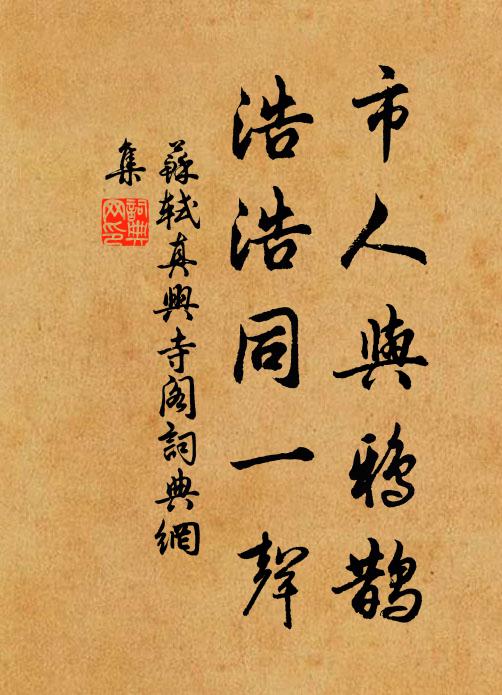 市人與鴉鵲
浩浩同一聲
蘇軾真興寺閣詞典網
集
詞典網印